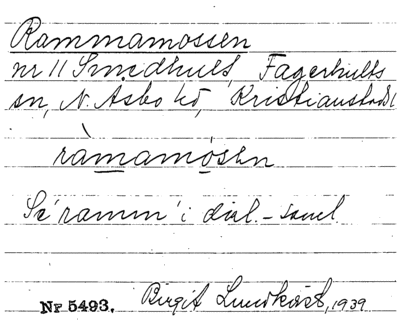 Rammamossen
nr 11 Smedhult, Fagerhults
sn, N. Åsbo hd, Kristianstads l
ràmamosen
Se 'ramm' i dial.-saml
Nr 5493. Birgit Lundkvist, 1939